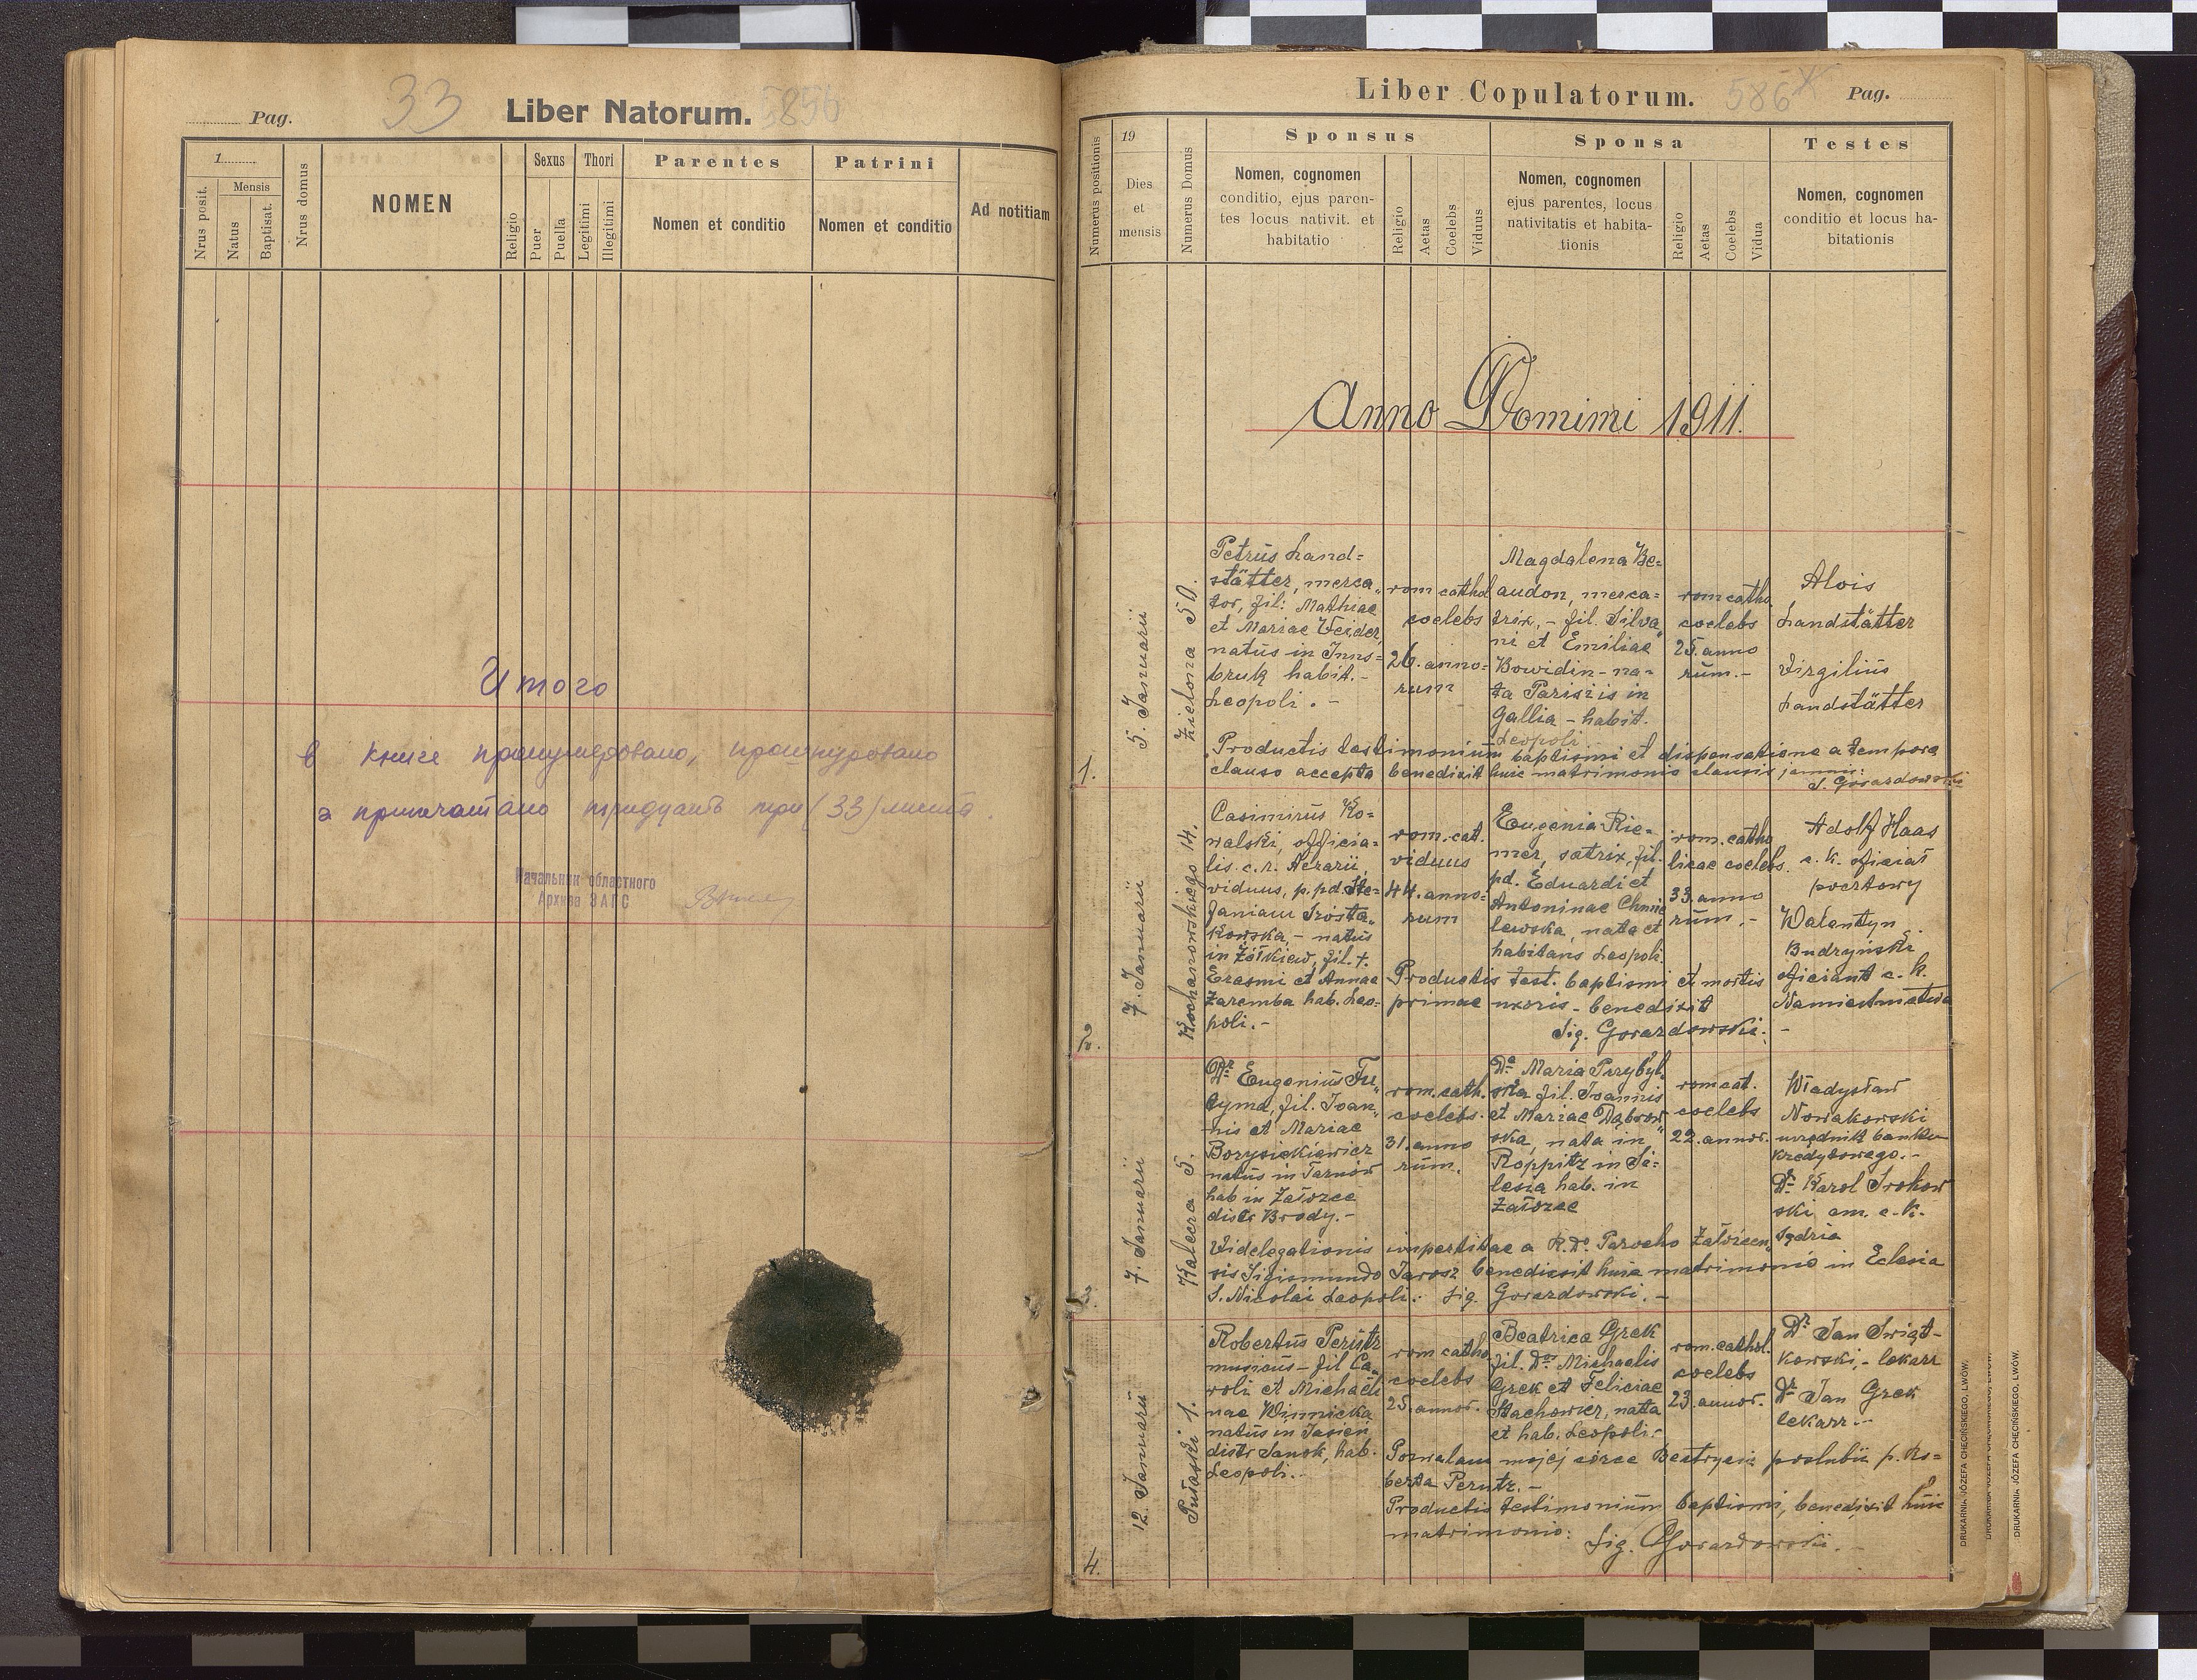 Pag.
33
Liber Natorum.
5856
1
Nrus posit.
Mensis
Natus
Baptisat.
Nrus domus
NOMEN
Religio
Sexus
Puer
Puella
Thori
Legitimi
Illegitimi
Parentes
Nomen et conditio
Patrini
Nomen et conditio
Ad notitiam
Итого
в книге пронумеровано, прошнуровано
припечатано тридцать три (33) листа.
Начальник областного
Архива ЗАГС
Liber Copulatorum.
586
Pag.
Numerus positionis
19
Dies
et
mensis
Numerus Domus
Sponsus
Nomen, cognomen
conditio, ejus paren-
tes locus nativit. et
habitatio
Religio
Aetas
Coelebs
Viduus
Sponsa
Nomen, cognomen
ejus parentes, locus
nativitatis et habita-
tionis
Religio
Aetas
Coelebs
Vidua
Testes
Nomen, cognomen
conditio et locus ha-
bitationis
Anno Domimi 1911.
1.
5. Januarii
Zielona 50.
Petrus Land=
stätter, merca„
tor, fil: Mathiae
et Mariae Weider,
natus in Inns=
bruk habit.-
Leopoli.-
rom cathol
coelebs
26. anno=
rum
Magdalena Be=
audon, merca=
trix,- fil. Silva„
ni et Emiliae
Bowidin- na-
ta Parisiis in
Gallia - habit.
Leopoli
rom catho
coelebs
25. anno
rum.-
Alois
Landstätter
Virgilius
Landstätter
Productis testimonium baptismi et dispensatione a tempore
clauso accepta benedixit huic matrimonio clausis januis:
S. Gorazdowski
2.
7. Januarii
Kochanowskiego 14.
Casimirus Ko=
walski, officia=
lis c.r. Aerarii,
viduus, p. pd. Ste=
faniam Trosta„
kowska,- natus
in Żółkiew, fil. +.
Erasmi et Annae
Zaremba hab. Leo=
poli.-
rom. cat.
viduus
44. anno=
rum
Eugenia Rie=
mer, satrix, fil.
pd. Eduardi et
Antoninae Chmie
lewska, nata et
habitans Leopoli.
rom. catho
licae coelebs.
33. anno
rum.-
Adolf Haas
c. k. oficiał
pocztowy
Walentyn
Budzyński
oficiant c. k.
Namiestnictwa
Productis test. baptismi et mortis
primae uxoris - benedixit
Sig. Gorazdowski.-
3.
7. Januarii
Kalecza 5.
Dr Eugenius Tu„
czyma, fil. Joan„
nis et Mariae
Borysiekiewicz
natus in Tarnów
hab in Załozce
distr Brody.-
rom. cath.
coelebs.
31. anno
rum.
Da Maria Przybył„
ska fil. Joannis
et Mariae Dąbrow„
ska, nata in
Roppitz in Si=
lesia hab. in
Załozce
rom cat.
coelebs
22. annor.
Władysław
Nowakowski
urzędnik banku
kredytowego.-
Dr Karol Trokow
ski em. c. k.
Sędzia
Vi delegationis impertitae a R. Do Parocho Załoźcen„
sis Sigismundo Jarosz benedixit huic matrimonio in Eclesia
S. Nicolai Leopoli: Sig. Gorazdowski.-
4.
12. Januarii
Pułaski 1.
Robertus Perutz
musicus - fil Ca„
roli et Michaeli
nae Winnicka
natus in Jasień
distr Sanok, hab.
Leopoli.-
rom catho.
coelebs
25. annor.
Beatrice Grek
fil. Dris Michaelis
Grek et Feliciae
Stachowicz, nata
et hab. Leopoli.-
rom. cathol.
coelebs
23. annor.
Dr Jan Świąt-
kowski,- lekarz
Dr Jan Grek
lekarz.-
Pozwalam mojej córce Beatrycie poslubić p. Ro=
berta Perutz.-
Productis testimonium baptismi, benedixit huic
matrimonio:
Sig. Gorazdowski.
DRUKARNIA JÓZEFA CHĘCIŃSKIEGO, LWÓW.
DRUKARNIA JÓZEFA CHĘCIŃSKIEGO, LWÓW.
DRUKARNIA JÓZEFA CHĘCIŃSKIEGO, LWÓW.